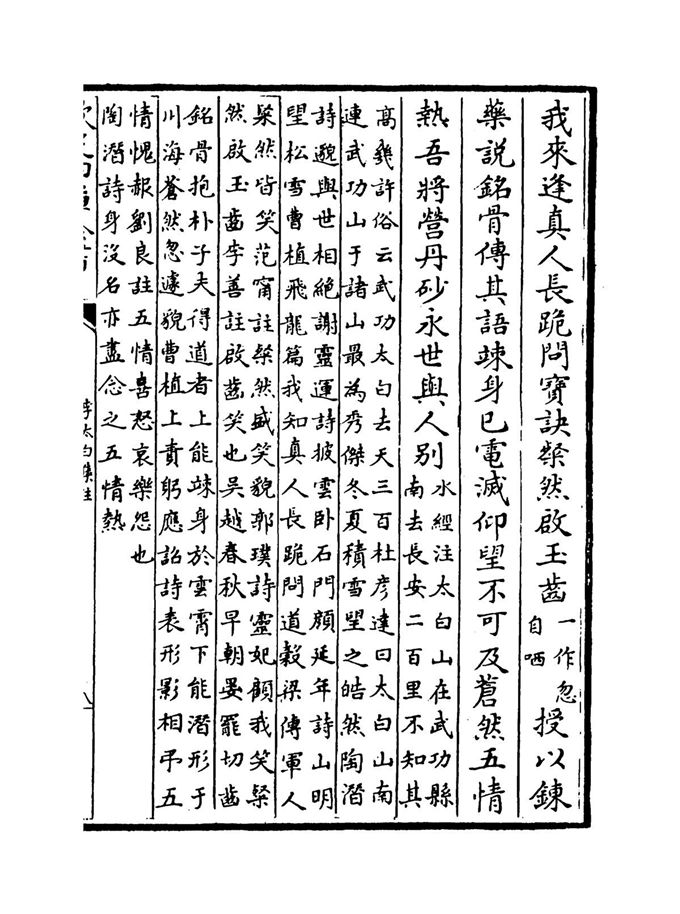 我來逢真人長跪問寶訣粲然啟玉齒一作忽自哂授以鍊
藥說銘骨傳其語竦身已電滅仰望不可及蒼然五情
熱吾將營丹砂永世與人別水經注太白山在武功縣
南去長安二百里不知其
高幾許俗云武功太白去天三百杜彦達曰太白山南
連武功山于諸山最為秀傑冬夏積雪望之皓然陶潛
詩邈與世相絶謝靈運詩披雲卧石門顔延年詩山明
望松雪曹植飛龍篇我知真人長跪問道榖梁傳軍人
粲然皆笑范甯註粲然盛笑貌郭璞詩靈妃顧我笑粲
然啟玉齒李善註啟齒笑也吳越春秋早朝晏罷切齒
銘骨抱朴子夫得道者上能竦身於雲霄下能潛形于
川海蒼然忽遽貌曹植上責躬應詔詩表形影相弔五
情愧赧劉良註五情喜怒哀樂怨也
陶潛詩身沒名亦盡念之五情熱
李太白集注
八